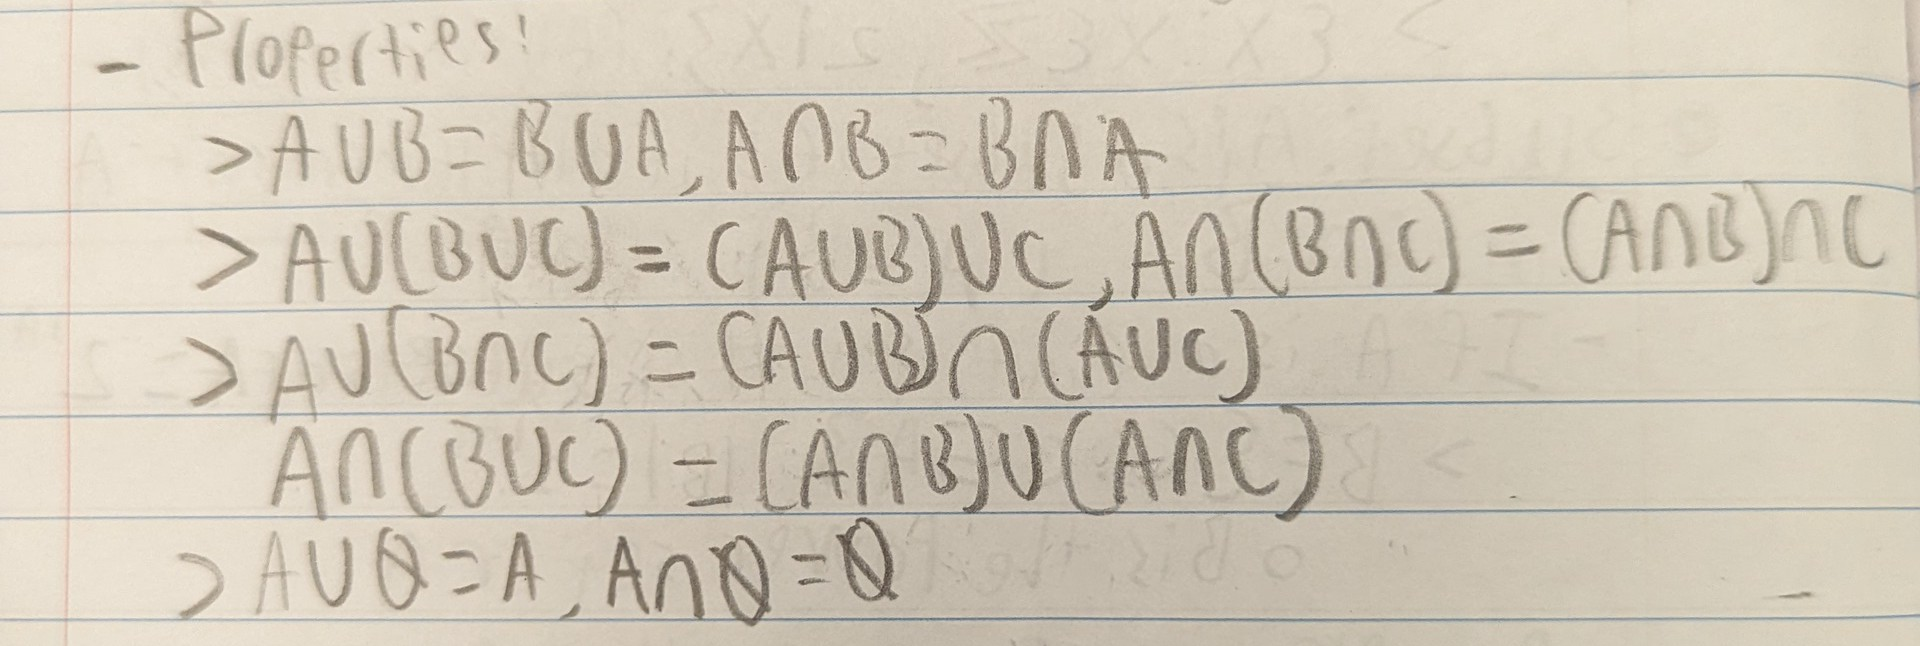 - Properties:
> A∪B = B∪A, A∩B = B∩A
> A∪(B∪C) = (A∪B)∪C, A∩(B∩C) = (A∩B)∩C
> A∪(B∩C) = (A∪B)∩(A∪C)
A∩(B∪C) = (A∩B)∪(A∩C)
> A∪∅ = A, A∩∅ = ∅